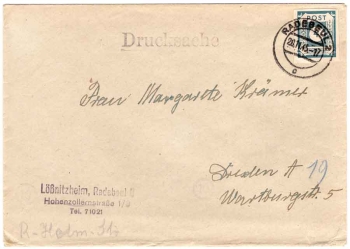 Drucksache
POST
RADEBEUL 2
c
Frau Margarete Krämer
Dresden A 19
Wartburgstr. 5
Lößnitzheim, Radebeul
Hohenzollernstraße
Tel. 71021